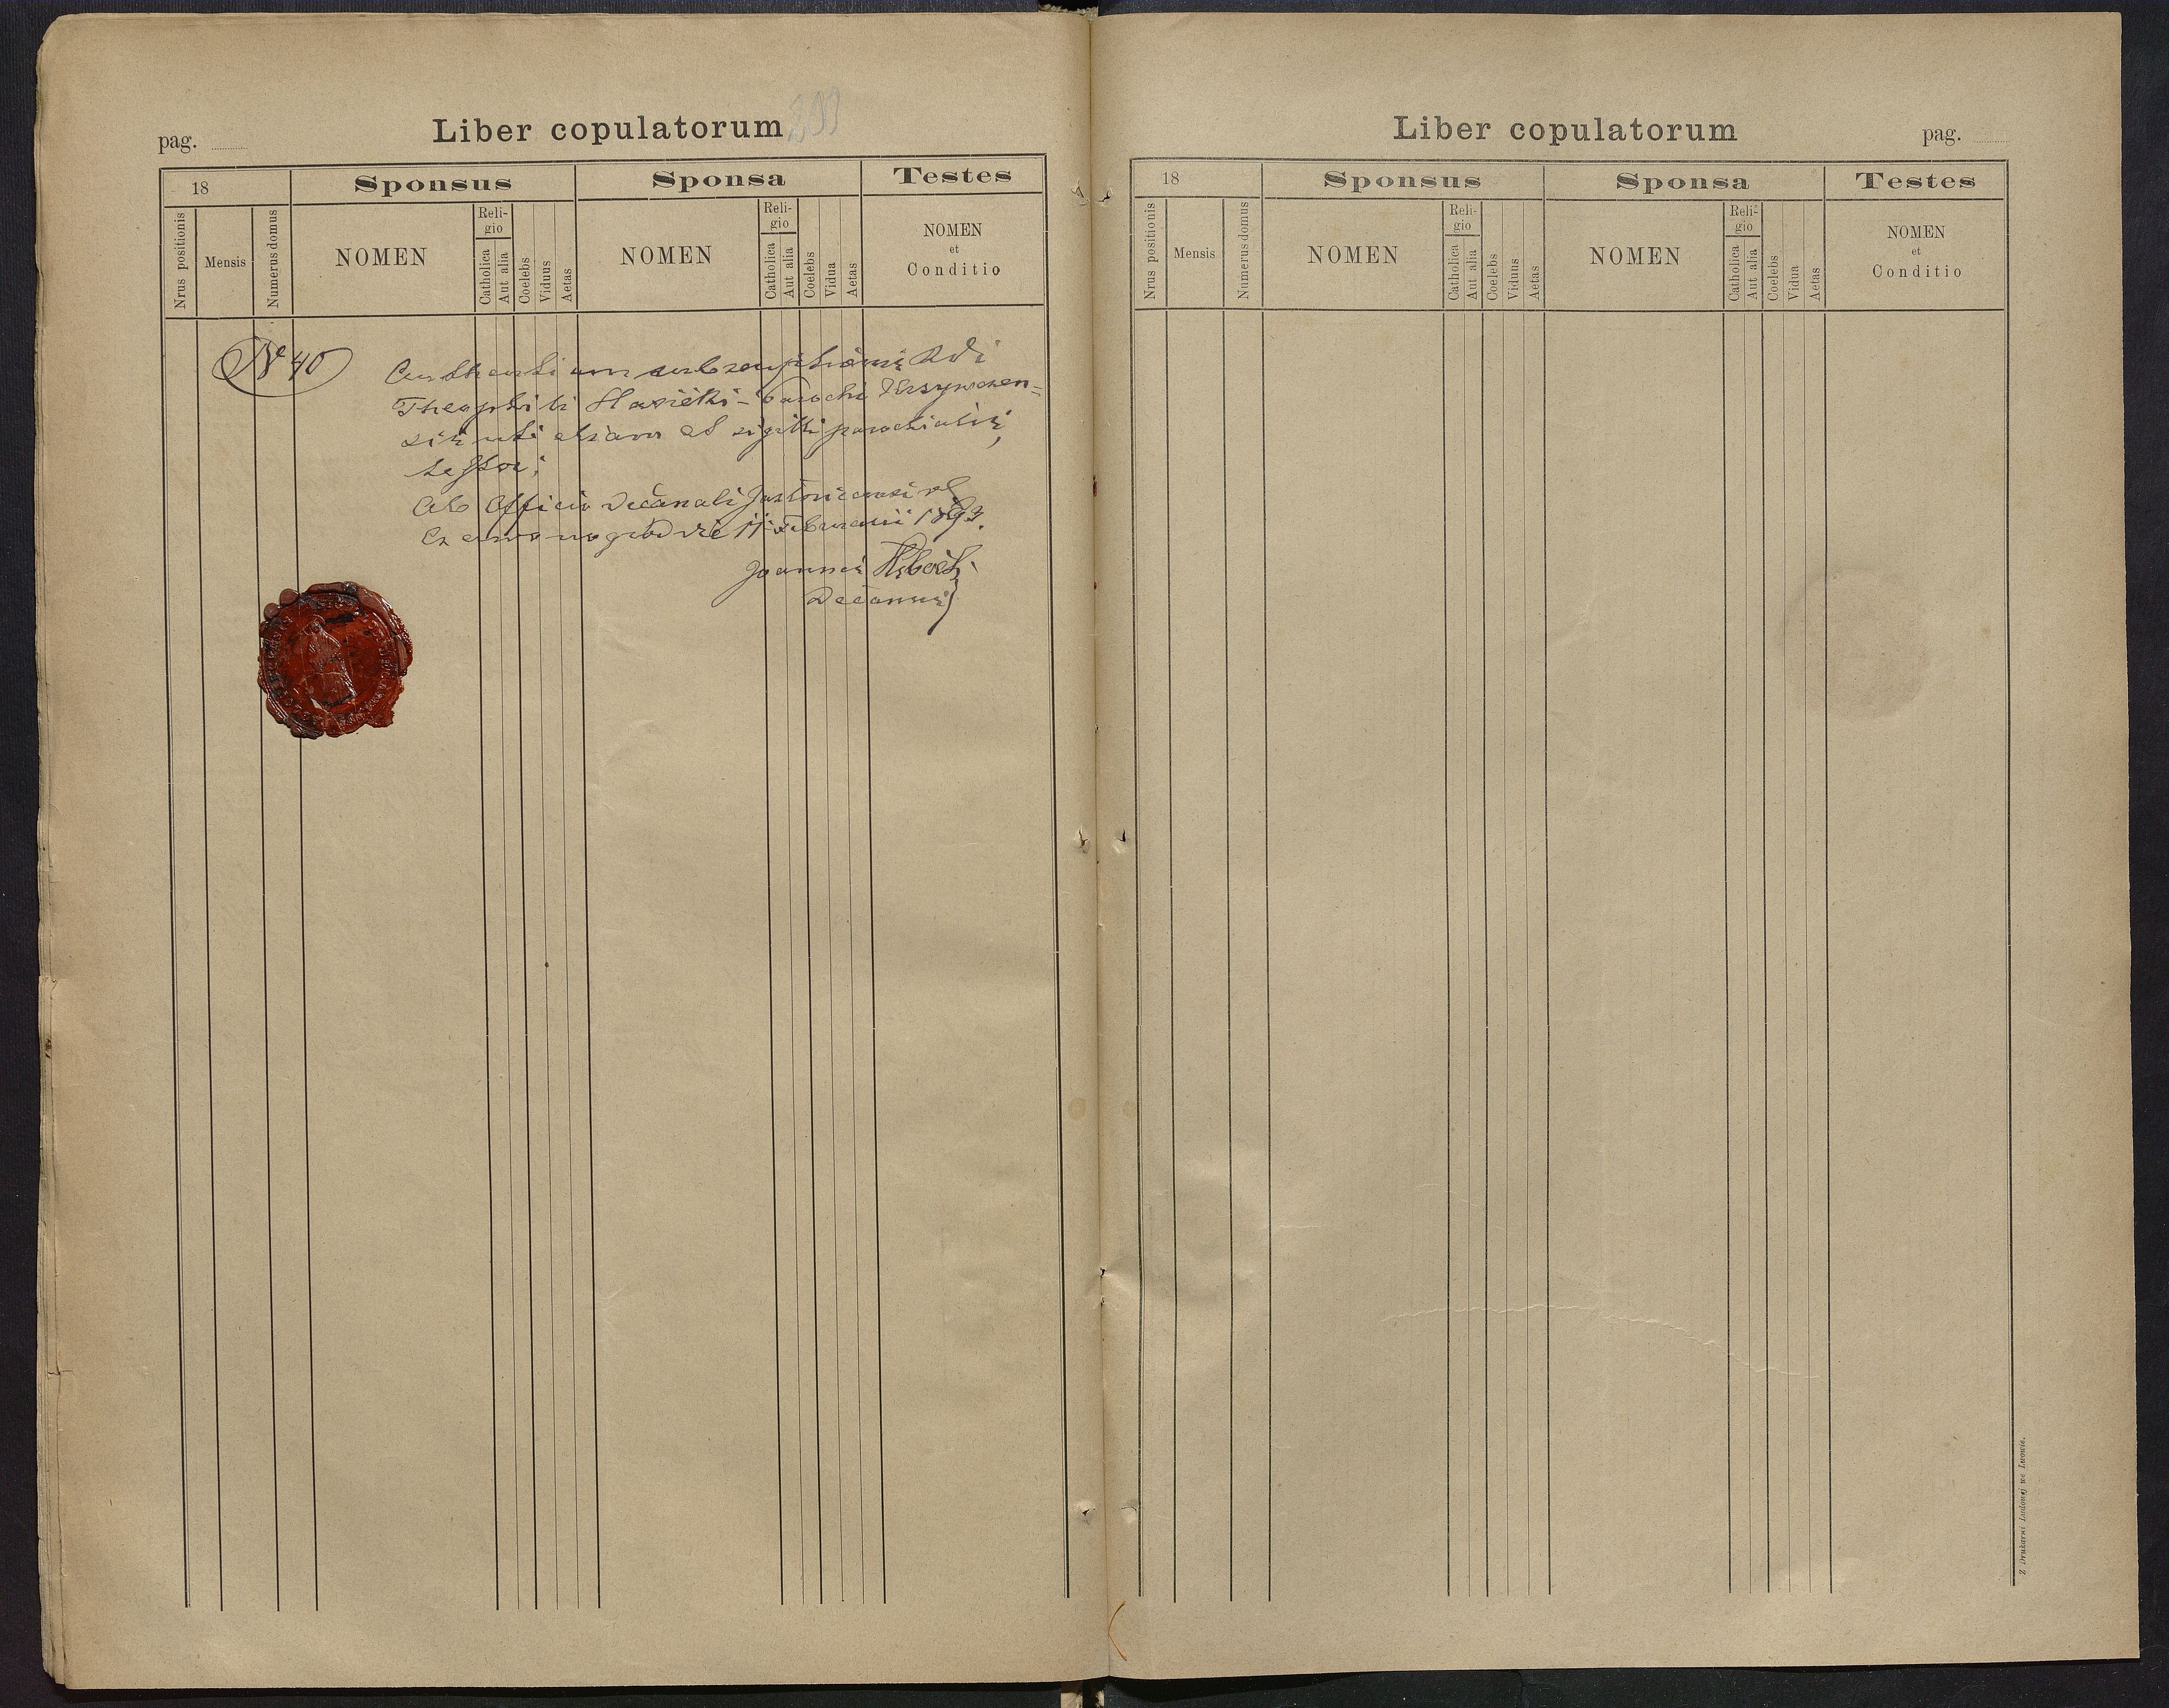 Liber copulatorum
pag.
18
Sponsus
Sponsa
Testes
Nrus positionis
Mensis
Numerus domus
NOMEN
Reli-
gio
Catholica
Aut alia
Coelebs
Viduus
Aetas
NOMEN
Reli-
gio
Catholica
Aut alia
Coelebs
Vidua
Aetas
NOMEN
et
Conditio
No 40
Authenticam subscriptionis Rdi
Theophili - Parochi
sis uti etiam et sigilli parochialis,
testor;
Ab Officio Decanali
11 Februarii 1893.
Joannes
Decanus
Liber copulatorum
pag.
18
Sponsus
Sponsa
Testes
Nrus positionis
Mensis
Numerus domus
NOMEN
Reli-
gio
Catholica
Aut alia
Coelebs
Viduus
Aetas
NOMEN
Reli-
gio
Catholica
Aut alia
Coelebs
Vidua
Aetas
NOMEN
et
Conditio
Z Drukarni Ludowej we Lwowie.